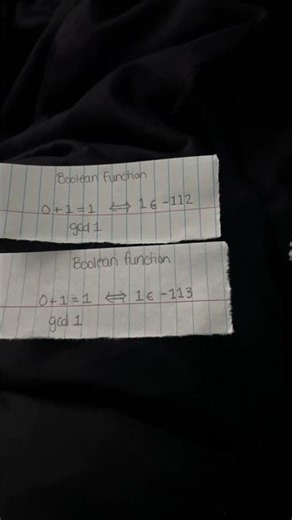 Boolean function
0+1=1 ⇔ 16 -112
gcd 1
Boolean function
0+1=1 ⇔ 16 -113
gcd 1